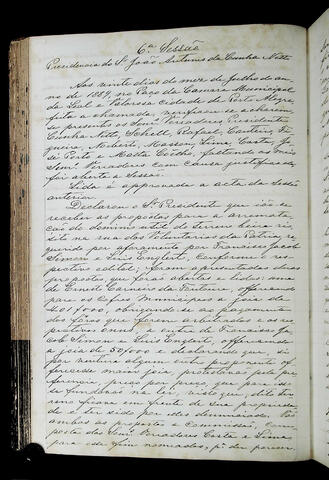 6ª Sessão
Presidencia do Sr João Antunes da Cunha Netto
Aos vinte dias do mez de Junho do an-
no de 1884, no Paço da Camara Municipal
da Leal e Valorosa cidade de Porto Alegre,
feita a chamada, verificou-se acharem-
se presentes os Senrs Vereadores Presidente
Cunha Netto, Schell, Rafael,
Norberto, Masson, Lima, Costa, Jo-
sé Porto e Coelho, faltando os mais
Senrs Vereadores com causa justificada,
foi aberta a Sessão.
Lida e approvada a acta da Sessão
anterior.
Declarou o Sr Presidente que ião-se
receber as propostas para a arremata-
ção do dominio util do terreno
sito na rua dos Voluntarios da Patria, re-
querido por aforamento por Francisco Jacob
Simon e Luis Englert, conforme o res-
pectivo edital; foram apresentadas duas
propostas, que foram abertas e lidas: uma
de Ernesto Carneiro da Fontoura, offerecendo
para os Cofres Municipaes a joia de
obrigando-se ao pagamento
dos fóros que forem arbitrados e os res-
pectivos onus, e outra de Francisco Ja-
cob Simon e Luis Englert, offerecendo
a joia de 50$000 e declarando que, si
por ventura algum outro proponente of-
ferecesse mais joia, protestava pela pre-
ferencia, preço por preço, que para is-
so fundava na lei, visto que, dito ter-
reno ficava em frente de sua proprieda-
de e ter sido por elles denunciado.
ambas as propostas a Commissão com-
posta dos Senrs Vereadores Costa e Lima
para este fim nomeados, pª dar parecer.